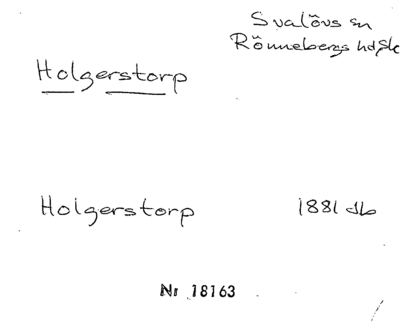 Svalövs sn
Rönnebergs hd Sk
Holgerstorp
Holgerstorp 1881 db
Nr 18163